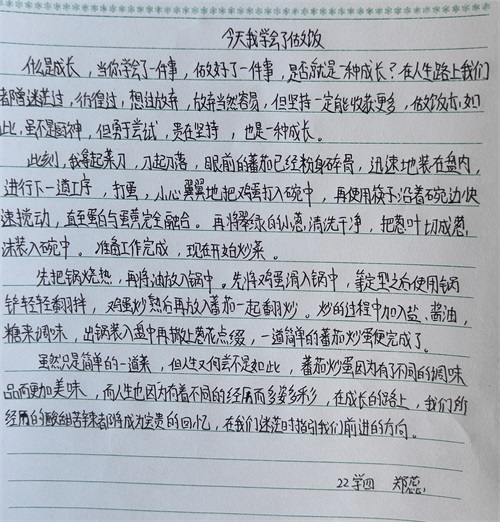 今天我学会了做饭
什么是成长，当你学会了一件事，做好了一件事，是否就是一种成长？在人生路上我们
都曾迷茫过，彷徨过，想过放弃，放弃当然容易，但坚持一定能收获更多，做饭亦如
此，虽不是厨神，但勇于尝试，贵在坚持，也是一种成长。
此刻，我拿起菜刀，刀起刀落，眼前的番茄已经粉身碎骨，迅速地装在盘内，
进行下一道工序，打蛋，小心翼翼地把鸡蛋打入碗中，再使用筷子沿着碗边快
速搅动，直至蛋白与蛋黄完全融合。再将翠绿的小葱清洗干净，把葱叶切成葱
沫装入碗中。准备工作完成，现在开始炒菜。
先把锅烧热，再将油放入锅中。先将鸡蛋滑入锅中，等定型之后使用锅
铲轻轻翻拌，鸡蛋炒熟后再放入番茄一起翻炒。炒的过程中加入盐、酱油，
糖来调味，出锅装入盘中再撒上葱花点缀，一道简单的番茄炒蛋便完成了。
虽然只是简单的一道菜，但人生又何尝不是如此，番茄炒蛋因为有了不同的调味
品而更加美味，而人生也因为有着不同的经历而多姿多彩，在成长的路上，我们所
经历的酸甜苦辣都将成为宝贵的回忆，在我们迷茫时指引我们前进的方向。
22学四 郑蕊